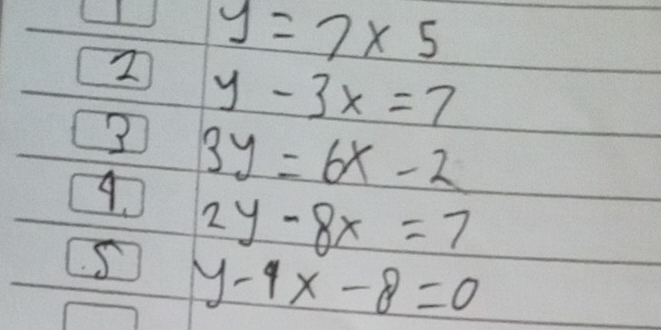 1 y = 7x 5
2 y - 3x = 7
3 3y = 6x - 2
4. 2y - 8x = 7
.5 y - 4x - 8 = 0